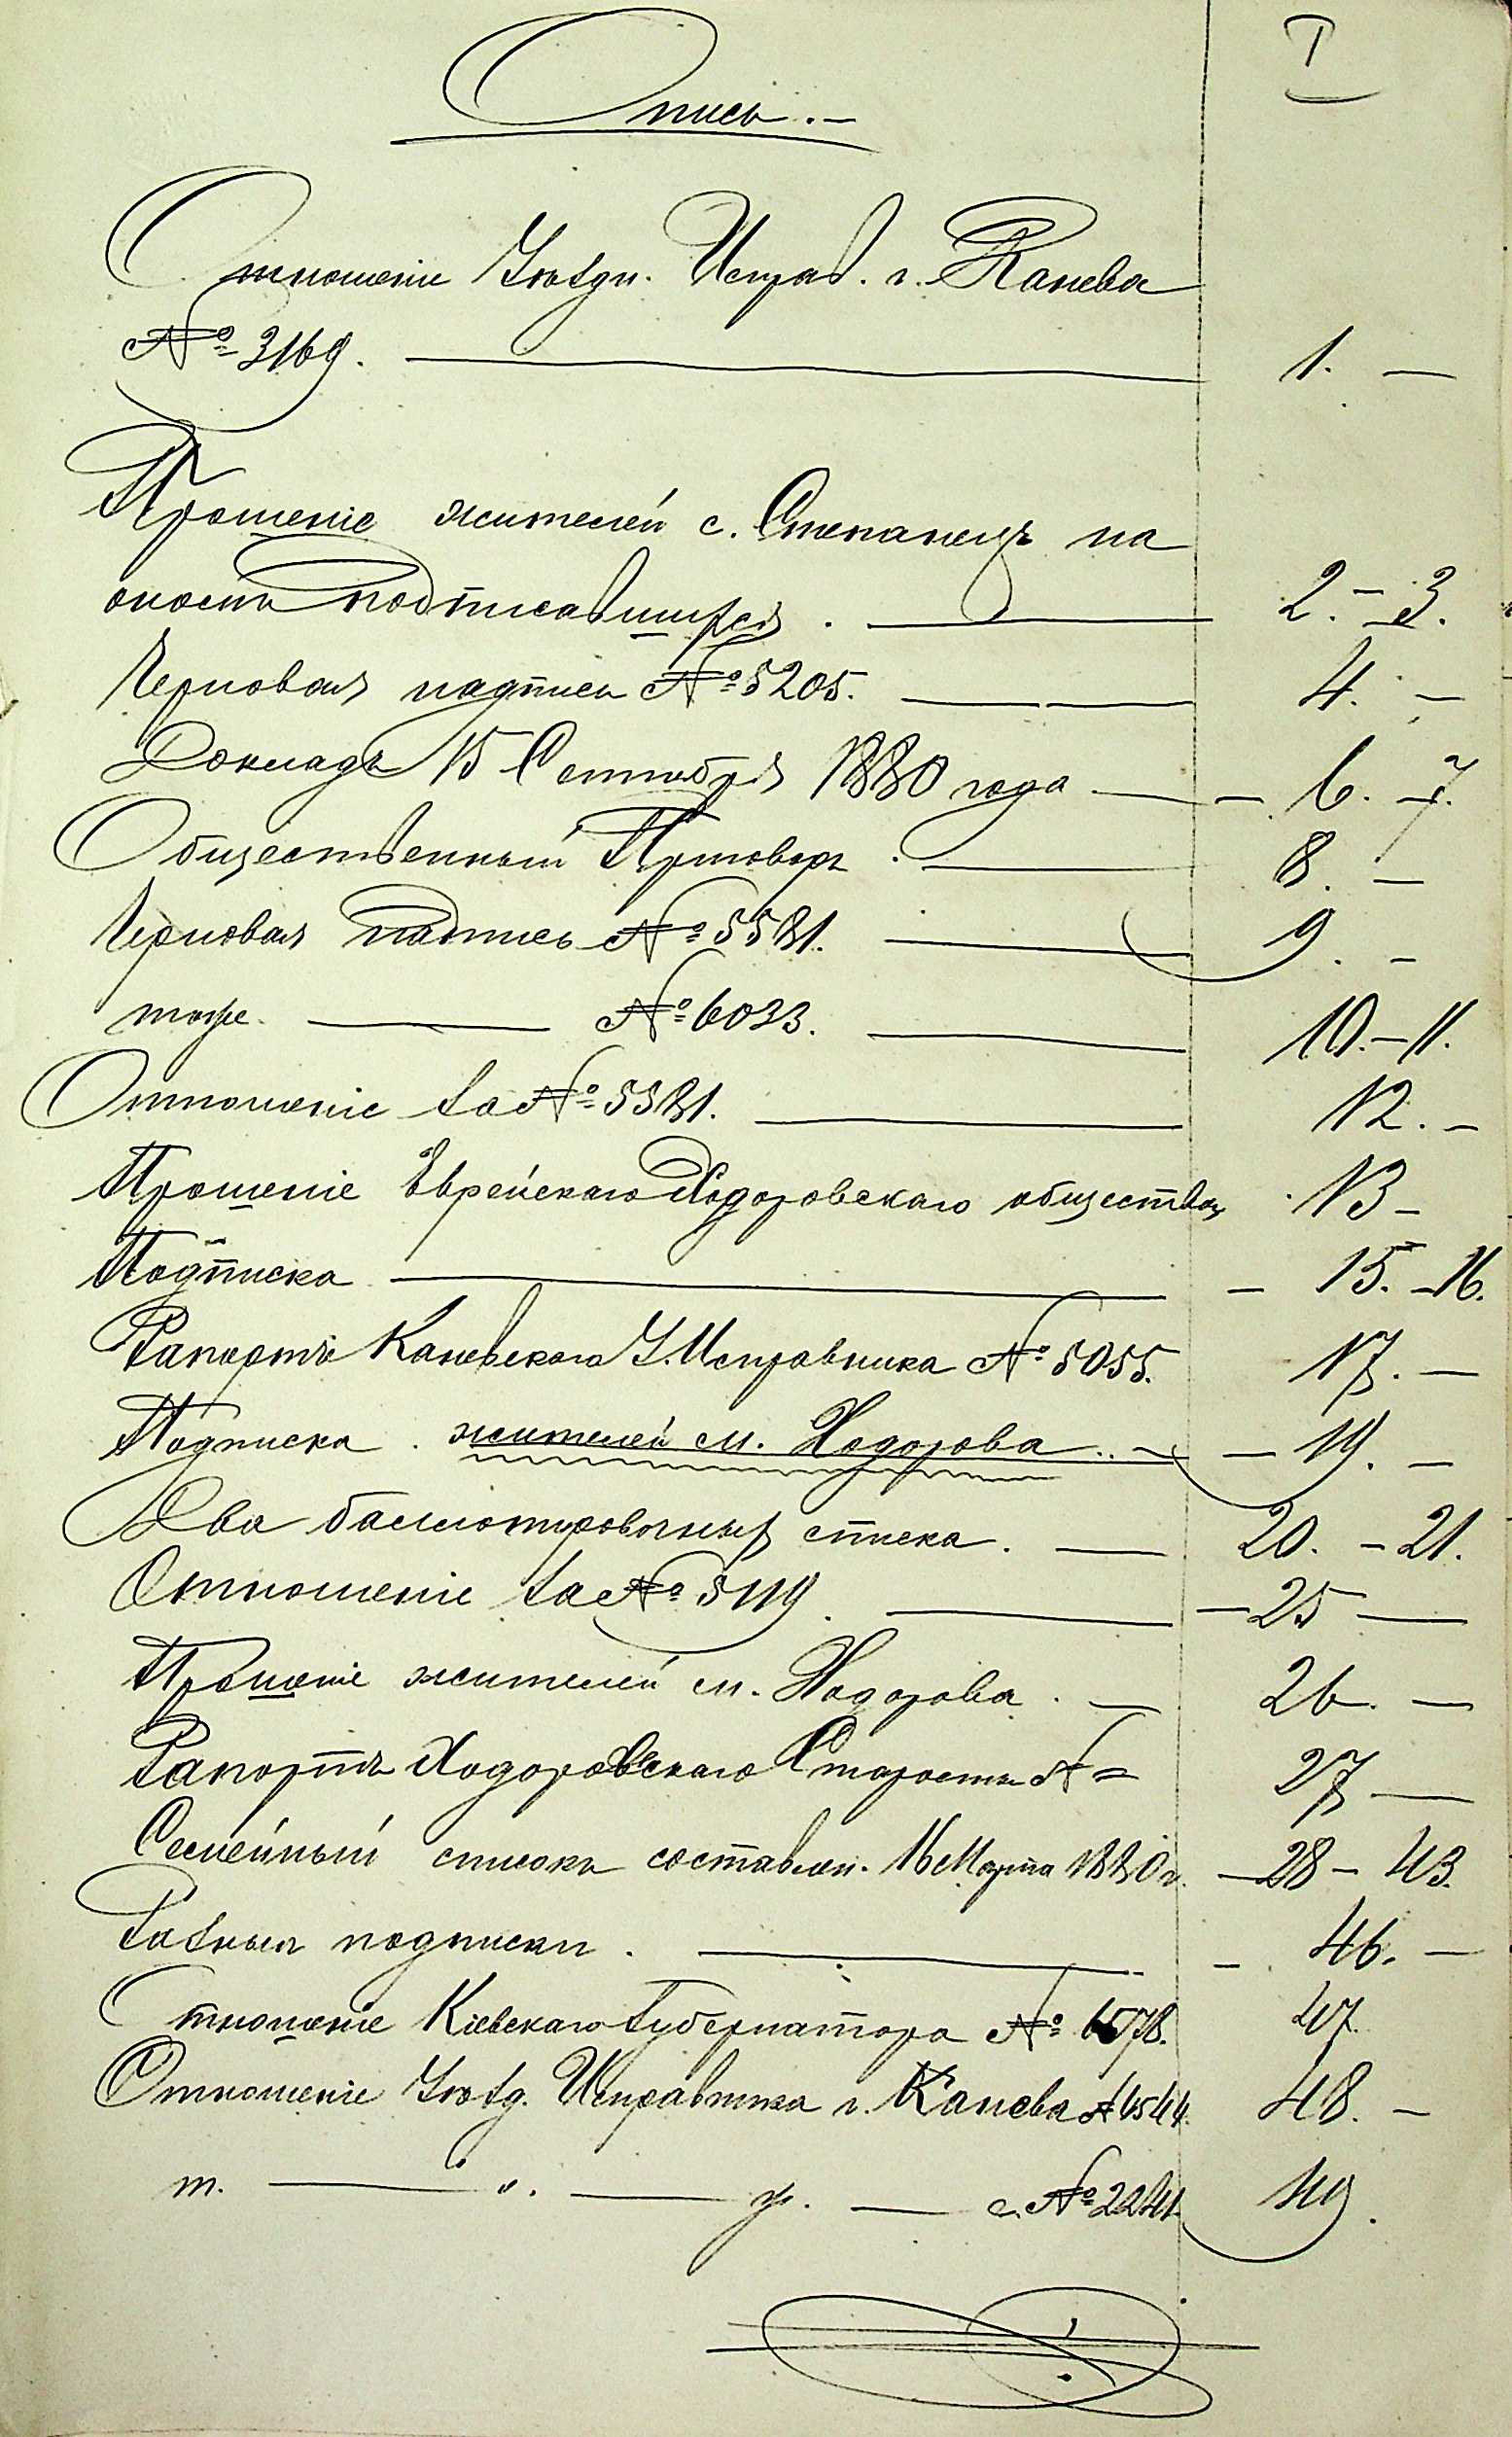 I
Опись.-
Отношеніе Уѣздн. Исправ. г. Канева
№ 3169. 1. -
Прошеніе жителей с. Степанецъ на
подписавшихся. 2.-3.
Черновая надпись № 5205. 4. -
Докладъ 15 Сентября 1880 года - 6. -7.
Общественный Приговоръ. 8. -
Черновая надпись № 5581. 9. -
тоже. № 6033. 10.-11.
Отношеніе за № 5381. 12. -
Прошеніе Еврейскаго Ходоровскаго общества 13 -
Подписка - 15. -16.
Рапортъ Каневскаго У. Исправника № 5055. 17. -
Подписка жителей м. Ходорова.. - 19. -
Два баллотировочныхъ списка. 20. - 21.
Отношеніе за № 5119. - 25 -
Прошеніе жителей м. Ходорова. - 26. -
Рапортъ Ходоровскаго Старосты № 27 -
Семейный списокъ составлен. 16 Марта 1880 г. - 28 - 43.
Разныя подписки. - 46. -
Отношеніе Кіевскаго Губернатора № 6578. 47.
Отношеніе Уѣзд. Исправника г. Канева № 4544. 48. -
т. - ". - ж. - с. № 2241. 49.